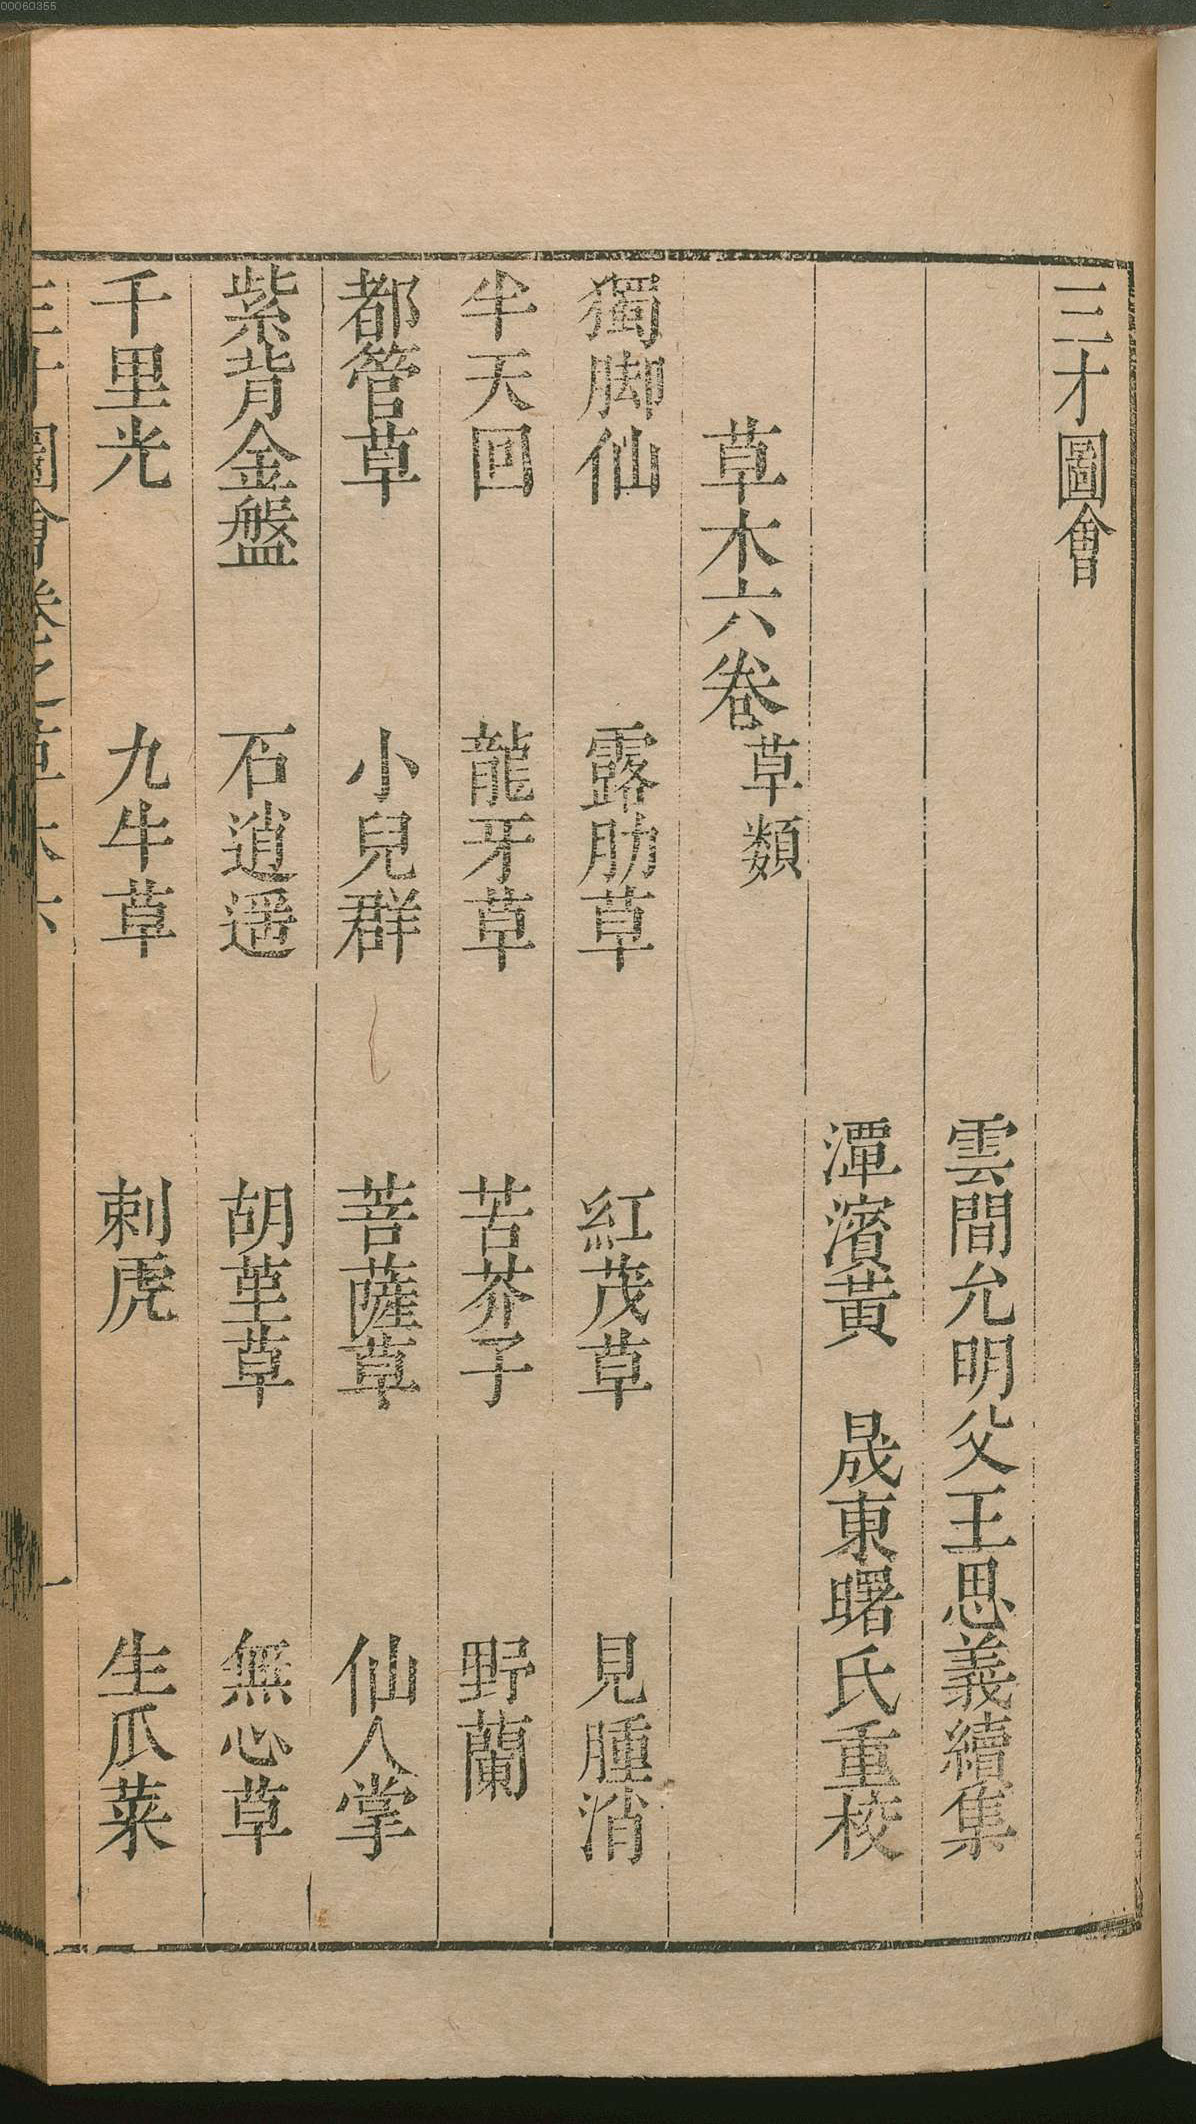 三才圖會
雲間允明父王思義續集
潭濱黃　晟東曙氏重校
草木六卷草類
獨脚仙　露肋草　紅茂草　見腫消
半天回　龍牙草　苦芥子　野蘭
都管草　小兒群　菩薩草　仙人掌
紫背金盤　石逍遥　胡堇草　無心草
千里光　九牛草　刺虎　生瓜菜
三才圖會卷之草木六　一
00060355